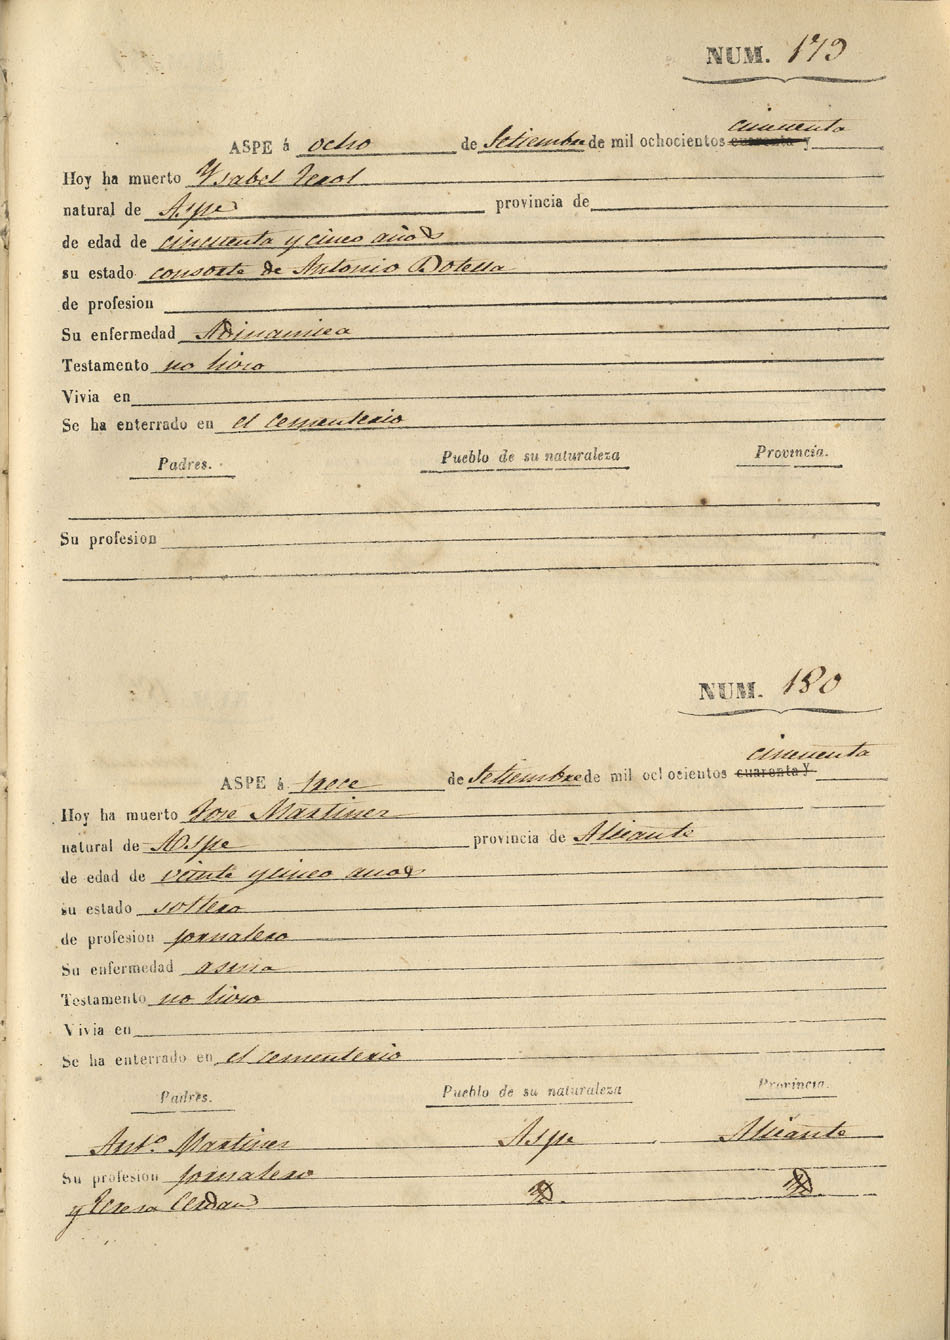 NUM. 179
cincuenta
ASPE á ocho de Setiembre de mil ochocientos cuarenta y
Hoy ha muerto Ysabel Terol
natural de Aspe provincia de
de edad de cincuenta y cinco años
su estado consorte de Antonio Botella
de profesion
Su enfermedad Adinamica
Testamento no hizo
Vivia en
Se ha enterrado en el cementerio
Padres. Pueblo de su naturaleza Provincia.
Su profesion
NUM. 180
cincuenta
ASPE á trece de Setiembre de mil ochocientos cuarenta y
Hoy ha muerto José Martinez
natural de Aspe provincia de Alicante
de edad de veinte y cinco años
su estado soltero
de profesion jornalero
Su enfermedad asma
Testamento no hizo
Vivia en
Se ha enterrado en el cementerio
Padres. Pueblo de su naturaleza Provincia.
Antº Martinez Aspe Alicante
Su profesion jornalero
y Teresa Cerdan